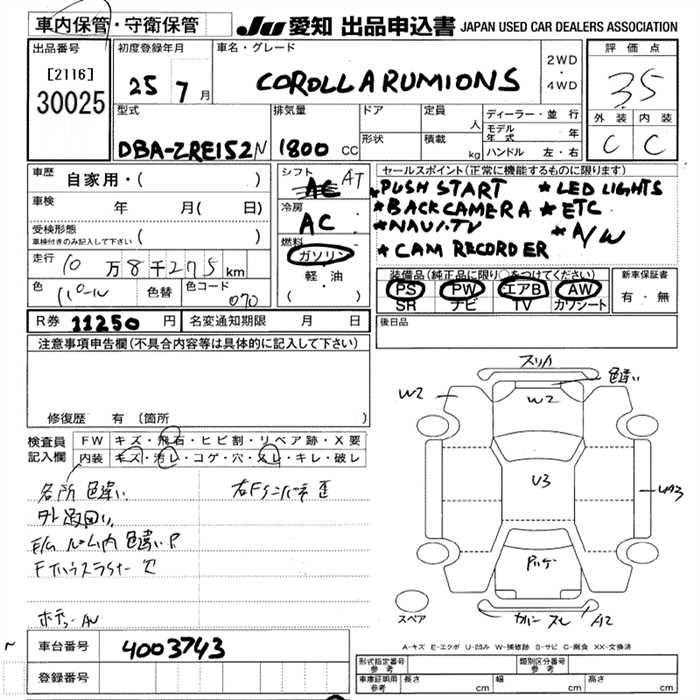 車内保管・守衛保管 JU 愛知 出品申込書 JAPAN USED CAR DEALERS ASSOCIATION
出品番号
[2116]
30025
初度登録年月
25 7月
車名・グレード
COROLLA RUMIONS
2WD
・
4WD
評価点
3.5
外装 内装
C C
型式
DBA-ZRE152N
排気量
1800 CC
ドア
形状
定員 人
積載 kg
ディーラー・並行
モデル年式 年
ハンドル 左・右
車歴 自家用・( )
車検 年 月( 日)
受検形態
車検付きのみ記入して下さい ( )
走行 10万8千275km
色 パール 色替 色コード 070
シフト AC AT
冷房 AC
燃料 ガソリン
軽・油
( )
セールスポイント(正常に機能するものに限ります)
★PUSH START ★LED LIGHTS
★BACKCAMERA ★ETC
★NAVI.TV ★A/W
★CAM RECORDER
装備品(純正品に限り○をつけてください)
PS PW エアB AW
SR ナビ TV カワシート
新車保証書
有・無
R券 11250円 名変通知期限 月 日
後日品
注意事項申告欄(不具合内容等は具体的に記入して下さい)
修復歴 有(箇所 )
検査員記入欄
FW キズ・飛石・ヒビ割・リペア跡・X要
内装 キズ・汚レ・コゲ・穴・スレ・キレ・破レ
各所色違い
スリカ
色違い
W2 W2
U3
UA3
A2
スペア
A-キズ E-エクボ U-凹み W-補修跡 S-サビ C-腐食 XX-交換済
車台番号 4003743
登録番号
形式指定番号 参考
類別区分番号 参考
車庫証明用 参考 長さ cm 幅 cm 高さ cm